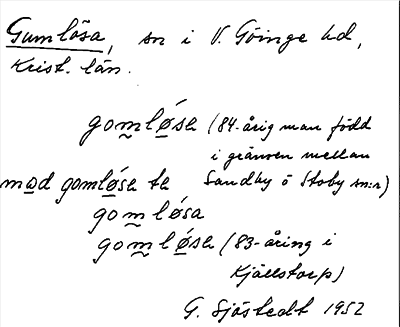 Gumlösa, sn i V. Göinge hd,
Krist. län.
gom̰lø̱sa (84-årig man född
i gränsen mellan
Sandby ö Stoby sn:r)
ma̱d gomlø̱sa te
gom̰lø̱sa
gom̰lø̱sa (83-åring i
Kjällstorp)
G. Sjöstedt 1952